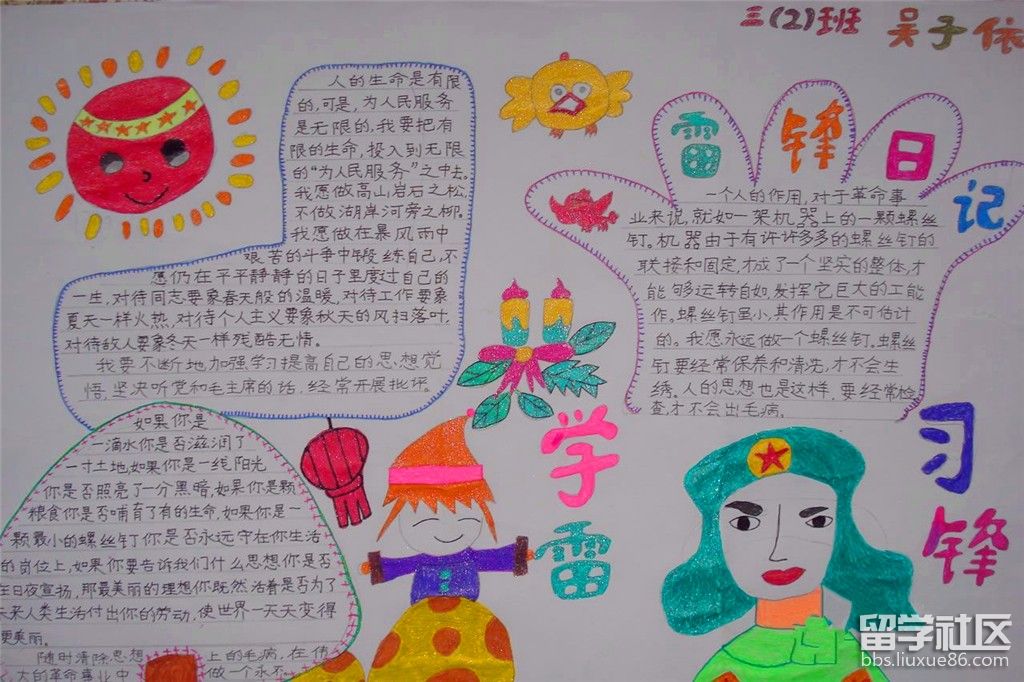 三(2)班 吴子依
人的生命是有限
的,可是,为人民服务
是无限的,我要把有
限的生命,投入到无限
的“为人民服务”之中去。
我愿做高山岩石之松,
不做湖岸河旁之柳。
我愿做在暴风雨中
艰苦的斗争中锻练自己,不
愿仍在平平静静的日子里度过自己的
一生,对待同志要象春天般的温暖,对待工作要象
夏天一样火热,对待个人主义要象秋天的风扫落叶,
对待敌人要象冬天一样残酷无情。
我要不断地加强学习提高自己的思想觉
悟,坚决听党和毛主席的话,经常开展批评
雷锋日记
一个人的作用,对于革命事
业来说,就如一架机器上的一颗螺丝
钉。机器由于有许许多多的螺丝钉的
联接和固定,才成了一个坚实的整体,才
能够运转自如,发挥它巨大的工能
作。螺丝钉虽小,其作用是不可估计
的。我愿永远做一个螺丝钉。螺丝
钉要经常保养和清洗,才不会生
绣。人的思想也是这样,要经常检
查,才不会出毛病。
如果你是
一滴水你是否滋润了
一寸土地,如果你是一线阳光
你是否照亮了一分黑暗,如果你是颗
粮食你是否哺育了有的生命,如果你是一
颗最小的螺丝钉你是否永远守在你生活
的岗位上,如果你要告诉我们什么思想你是否
在日夜宣扬,那最美丽的理想你既然活着是否为了
未来人类生活付出你的劳动,使世界一天天变得
更美丽。
随时清除思想 上的毛病,在伟
大的革命事业中 做一个永不
学雷
习锋
留学社区
bbs.liuxue86.com